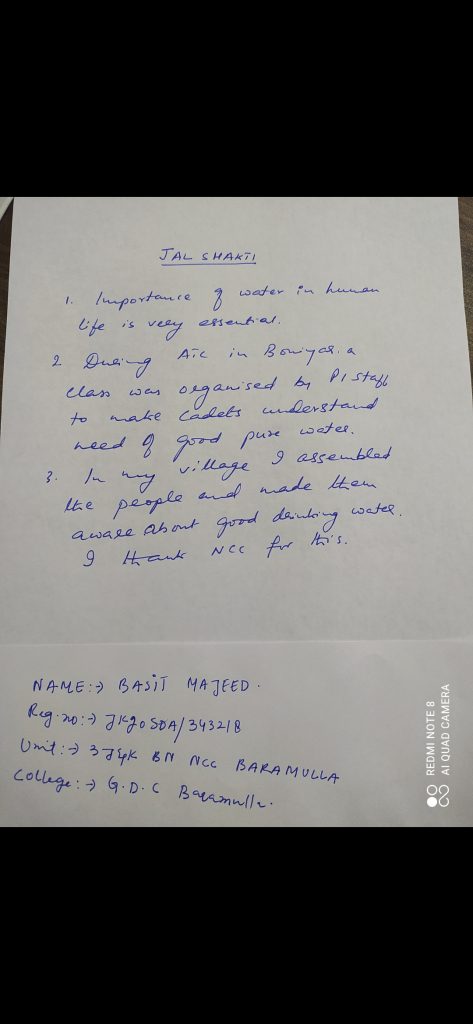 JAL SHAKTI
1. Importance of water in human
life is very essential.
2 During AIC in Boniyar. a
class was organised by PI staff
to make cadets understand
need of good pure water.
3. In my village I assembled
the people and made them
aware about good drinking water.
I thank NCC for this.
NAME:→ BASIT MAJEED.
Reg.no:→ JK20SDA/343218
Unit:→ 3J&K BN NCC BARAMULLA
College:→ G.D.C Baramulla.
REDMI NOTE 8
AI QUAD CAMERA